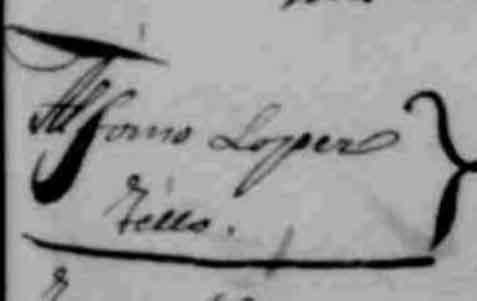 Alfonso Loper
Tello.